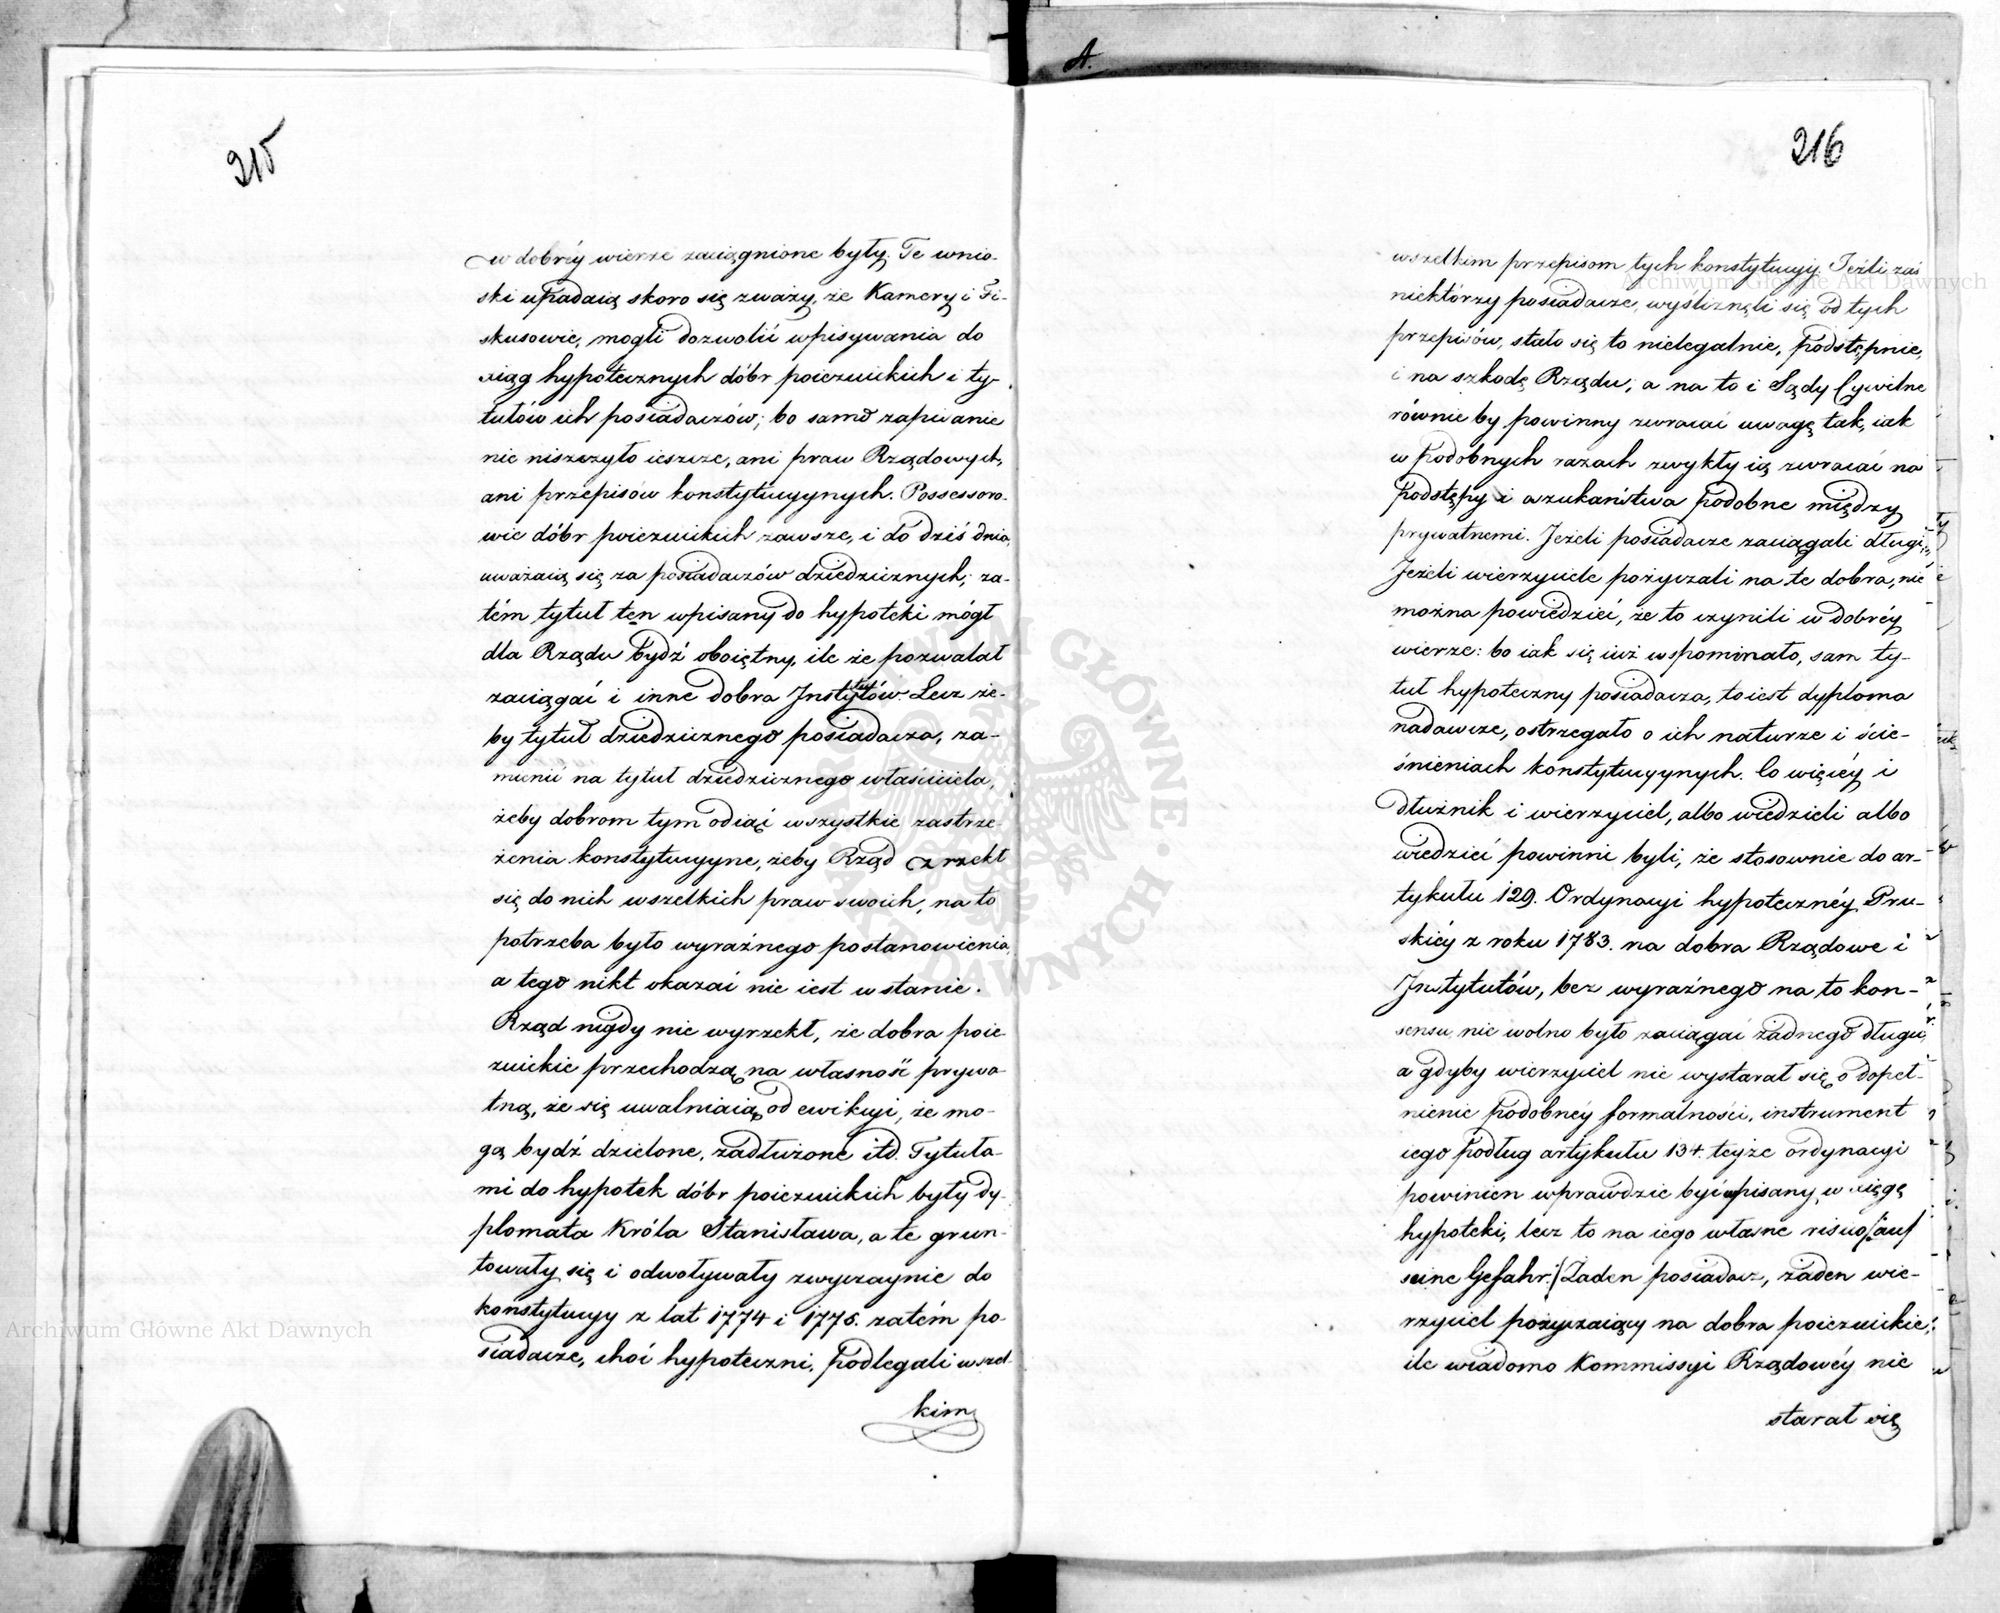 215
w dobréy wierze zaciągnione były. Te wnio-
ski upadaią skoro się zważy, że Kamery i Fi-
skusowie, mogli dozwolić wpisywania do
xiąg hypotecznych dóbr poiezuickich i ty-
tułów ich posiadaczów; bo samo zapisanie
nie niszczyło ieszcze, ani praw Rządowych,
ani przepisów konstytucyynych. Possessoro-
wie dóbr poiezuickich zawsze, i do dziś dnia,
uważaią się za posiadaczów dziedzicznych; za-
tém tytuł ten wpisany do hypoteki mógł
dla Rządu bydź oboiętny, ile że pozwalał
zaciągać i inne dobra Instytutów. Lecz że-
by tytuł dziedzicznego posiadacza, za-
mienić na tytuł dziedzicznego właściciela,
żeby dobrom tym odiąć wszystkie zastrze-
żenia konstytucyyne, żeby Rząd zrzekł
się do nich wszelkich praw swoich, na to
potrzeba było wyraźnego postanowienia,
a tego nikt okazać nie iest w stanie.
Rząd nigdy nie wyrzekł, że dobra poie-
zuickie przechodzą na własność prywa-
tną, że się uwalniaią od ewikcyi, że mo-
gą bydź dzielone, zadłużone itd. Tytuła-
mi do hypotek dóbr poiezuickich były dy-
plomata Króla Stanisława, a te grun-
towały się i odwoływały zwyczaynie do
konstytucyy z lat 1774 i 1775. zatém po-
siadacze, choć hypoteczni, podlegali wszel-
kim
A.
216
wszelkim przepisom tych konstytucyy. Jeźli zaś
niektórzy posiadacze, wyśliznęli się od tych
przepisów, stało się to nielegalnie, podstępnie,
i na szkodę Rządu; a na to i Sądy Cywilne
równie by powinny zwracać uwagę tak, iak
w podobnych razach zwykły ią zwracać na
podstępy i oszukaństwa podobne między
prywatnemi. Jeżeli posiadacze zaciągali długi,
Jeżeli wierzyciele pożyczali na te dobra, nie
można powiedzieć, że to czynili w dobréy
wierze: bo iak się iuż wspominało, sam ty-
tuł hypoteczny posiadacza, to iest dyploma
nadawcze, ostrzegało o ich naturze i ście-
śnieniach konstytucyynych. Co więcéy i
dłużnik i wierzyciel, albo wiedzieli albo
wiedzieć powinni byli, że stosownie do ar-
tykułu 129. Ordynacyi hypotecznéy Pru-
skiéy z roku 1783. na dobra Rządowe i
Instytutów, bez wyraźnego na to kon-
sensu nie wolno było zaciągać żadnego długu,
a gdyby wierzyciel nie wystarał się o dopeł-
nienie podobnéy formalności, instrument
iego podług artykułu 134. teyże ordynacyi
powinien wprawdzie być wpisany w xięgę
hypoteki, lecz to na iego własne risico /: auf
seine Gefahr :/ Żaden posiadacz, żaden wie-
rzyciel pożyczaiący na dobra poiezuickie,
ile wiadomo Kommissyi Rządowéy nie
starał się